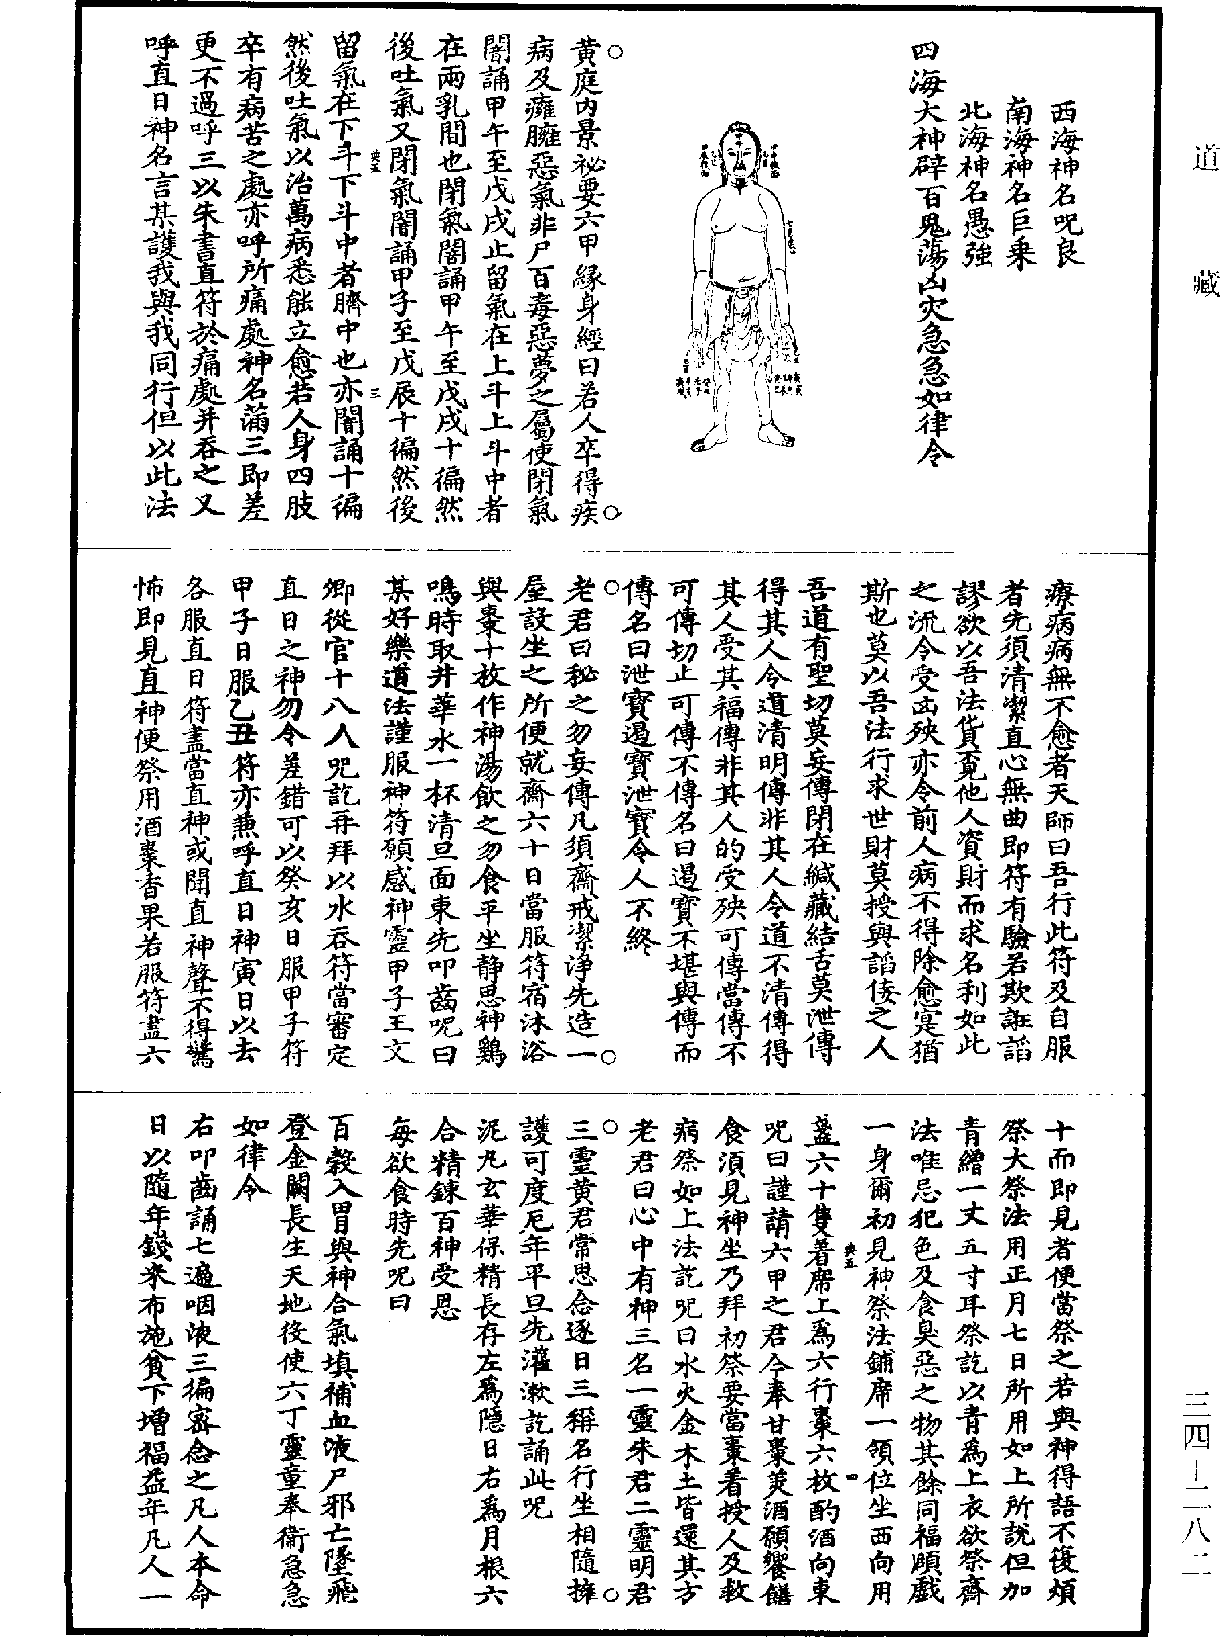 道藏
西海神名咒良
南海神名巨乘
北海神名愚強
四海大神辟百鬼蕩凶灾急急如律令
黃庭內景祕要六甲緣身經曰若人卒得疾
病及癰臃惡氣非尸百毒惡夢之屬使閉氣
闇誦甲午至戊戌止留氣在上斗上斗中者
在兩乳間也閉氣闇誦甲午至戊戌十徧然
後吐氣又閉氣闇誦甲子至戊辰十徧然後
留氣在下斗下斗中者臍中也亦闇誦十徧
然後吐氣以治萬病悉能立愈若人身四肢
卒有病苦之處亦呼所痛處神名滿三即差
更不過呼三以朱書直符於痛處并吞之又
呼直日神名言某護我與我同行但以此法
療病病無不愈者天師曰吾行此符及自服
者先須清潔直心無曲即符有驗若欺誑謟
謬欲以吾法貨覓他人資財而求名利如此
之流令受凶殃亦令前人病不得除愈寔猶
斯也莫以吾法行求世財莫授與謟佞之人
吾道有聖切莫妄傳閉在緘藏結舌莫泄傳
得其人令道清明傳非其人令道不清傳得
其人受其福傳非其人的受殃可傳當傳不
可傳切止可傳不傳名曰遏寶不堪與傳而
傳名曰泄寶遏寶泄寶令人不終
老君曰秘之勿妄傳凡須齋戒潔淨先造一
屋設坐之所便就齋六十日當服符宿沐浴
與棗十枚作神湯飲之勿食平坐静思神鷄
鳴時取井華水一杯清旦面東先叩齒咒曰
某好樂道法謹服神符願感神靈甲子王文
卿從官十八人咒訖再拜以水吞符當審定
直日之神勿令差錯可以癸亥日服甲子符
甲子日服乙丑符亦兼呼直日神寅日以去
各服直日符盡當直神或聞直神聲不得驚
怖即見直神便祭用酒棗香果若服符盡六
十而即見者便當祭之若與神得語不復煩
祭大祭法用正月七日所用如上所說但加
青繒一丈五寸耳祭訖以青為上衣欲祭齋
法唯忌犯色及食臭惡之物其餘同福頤戲
一身爾初見神祭法鋪席一領位坐西向用
盞六十隻著席上為六行棗六枚酌酒向東
咒曰謹請六甲之君今奉甘棗美酒願饗饍
食須見神坐乃拜初祭要當棗着授人及救
病祭如上法訖咒曰水火金木土皆還其方
老君曰心中有神三名一靈朱君二靈明君
三靈黃君常思念逐日三稱名行坐相隨擁
護可度厄年平旦先灌漱訖誦此咒
泥丸玄華保精長存左為隱日右為月根六
合精鍊百神受恩
每欲食時先咒曰
百穀入胃與神合氣填補血液尸邪亡墜飛
登金闕長生天地後使六丁靈童奉衛急急
如律令
右叩齒誦七遍咽液三徧密念之凡人本命
日以隨年錢米布施貧下增福益年凡人一
三四-二八二